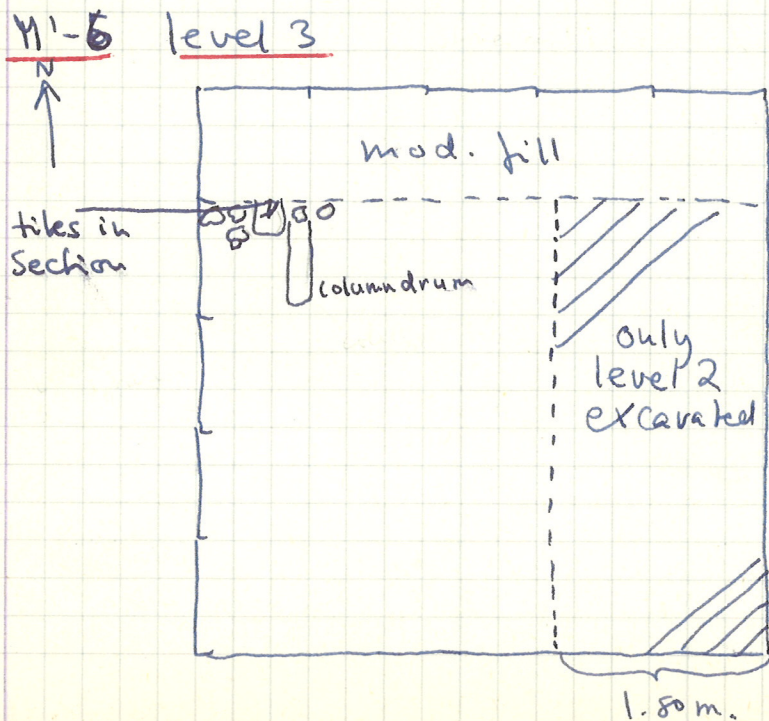 M'-6 level 3
N
mod. fill
tiles in
section
columndrum
only
level 2
excavated
1.80 m.